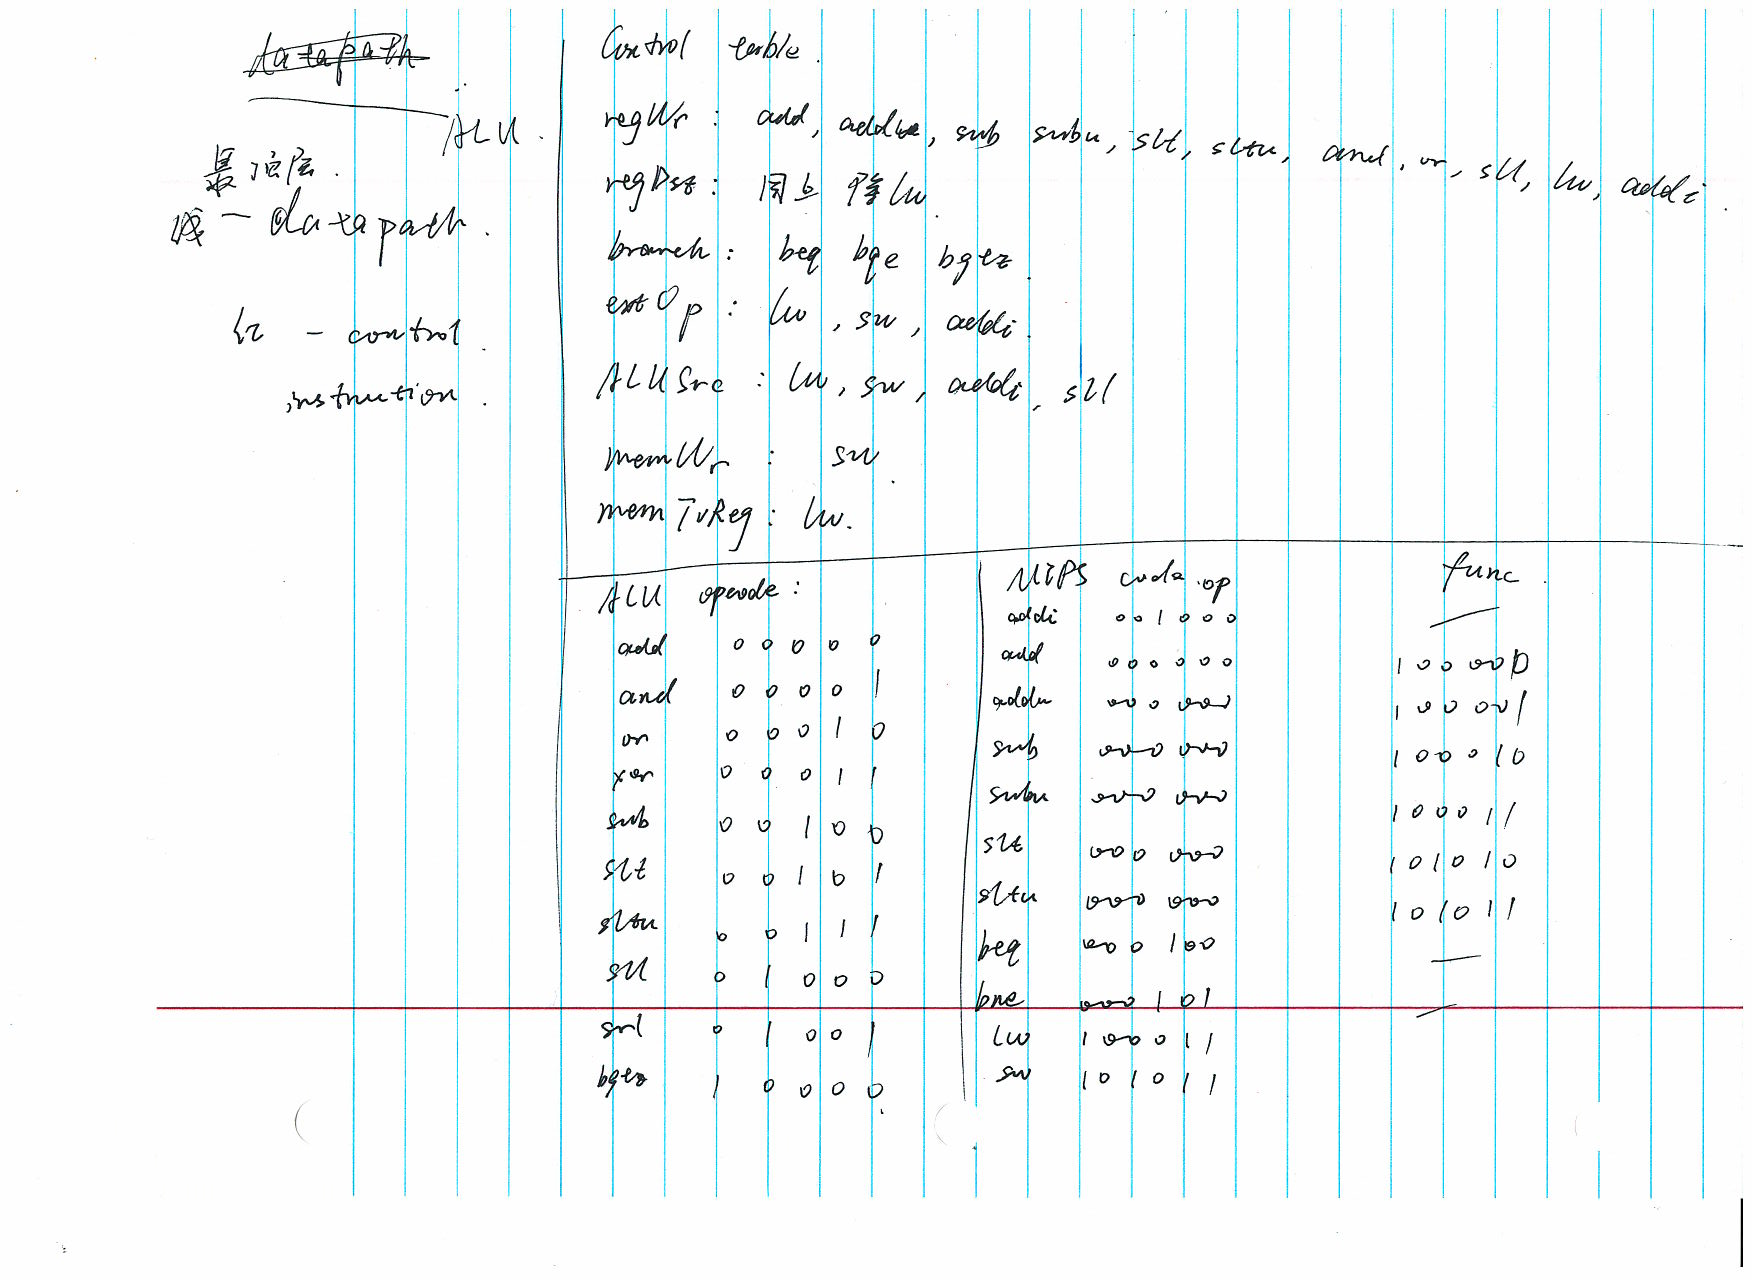 datapath
ALU.
最顶层.
浅 — datapath.
红 — control.
instruction.
Control table.
regWr: add, addu, sub subu, slt, sltu, and, or, sll, lw, addi.
regDst: 同上 除lw.
branch: beq bqe bgtz.
extOp: lw, sw, addi.
ALUSrc: lw, sw, addi, sll
memWr: sw.
memToReg: lw.
ALU opcode:
add 0 0 0 0 0
and 0 0 0 0 1
or 0 0 0 1 0
xor 0 0 0 1 1
sub 0 0 1 0 0
slt 0 0 1 0 1
sltu 0 0 1 1 1
sll 0 1 0 0 0
srl 0 1 0 0 1
bgtz 1 0 0 0 0.
MIPS code.op func.
addi 001000 —
add 000000 100000
addu 000000 100001
sub 000000 100010
subu 000000 100011
slt 000000 101010
sltu 000000 101011
beq 000100 —
bne 000101 —
lw 100011
sw 101011